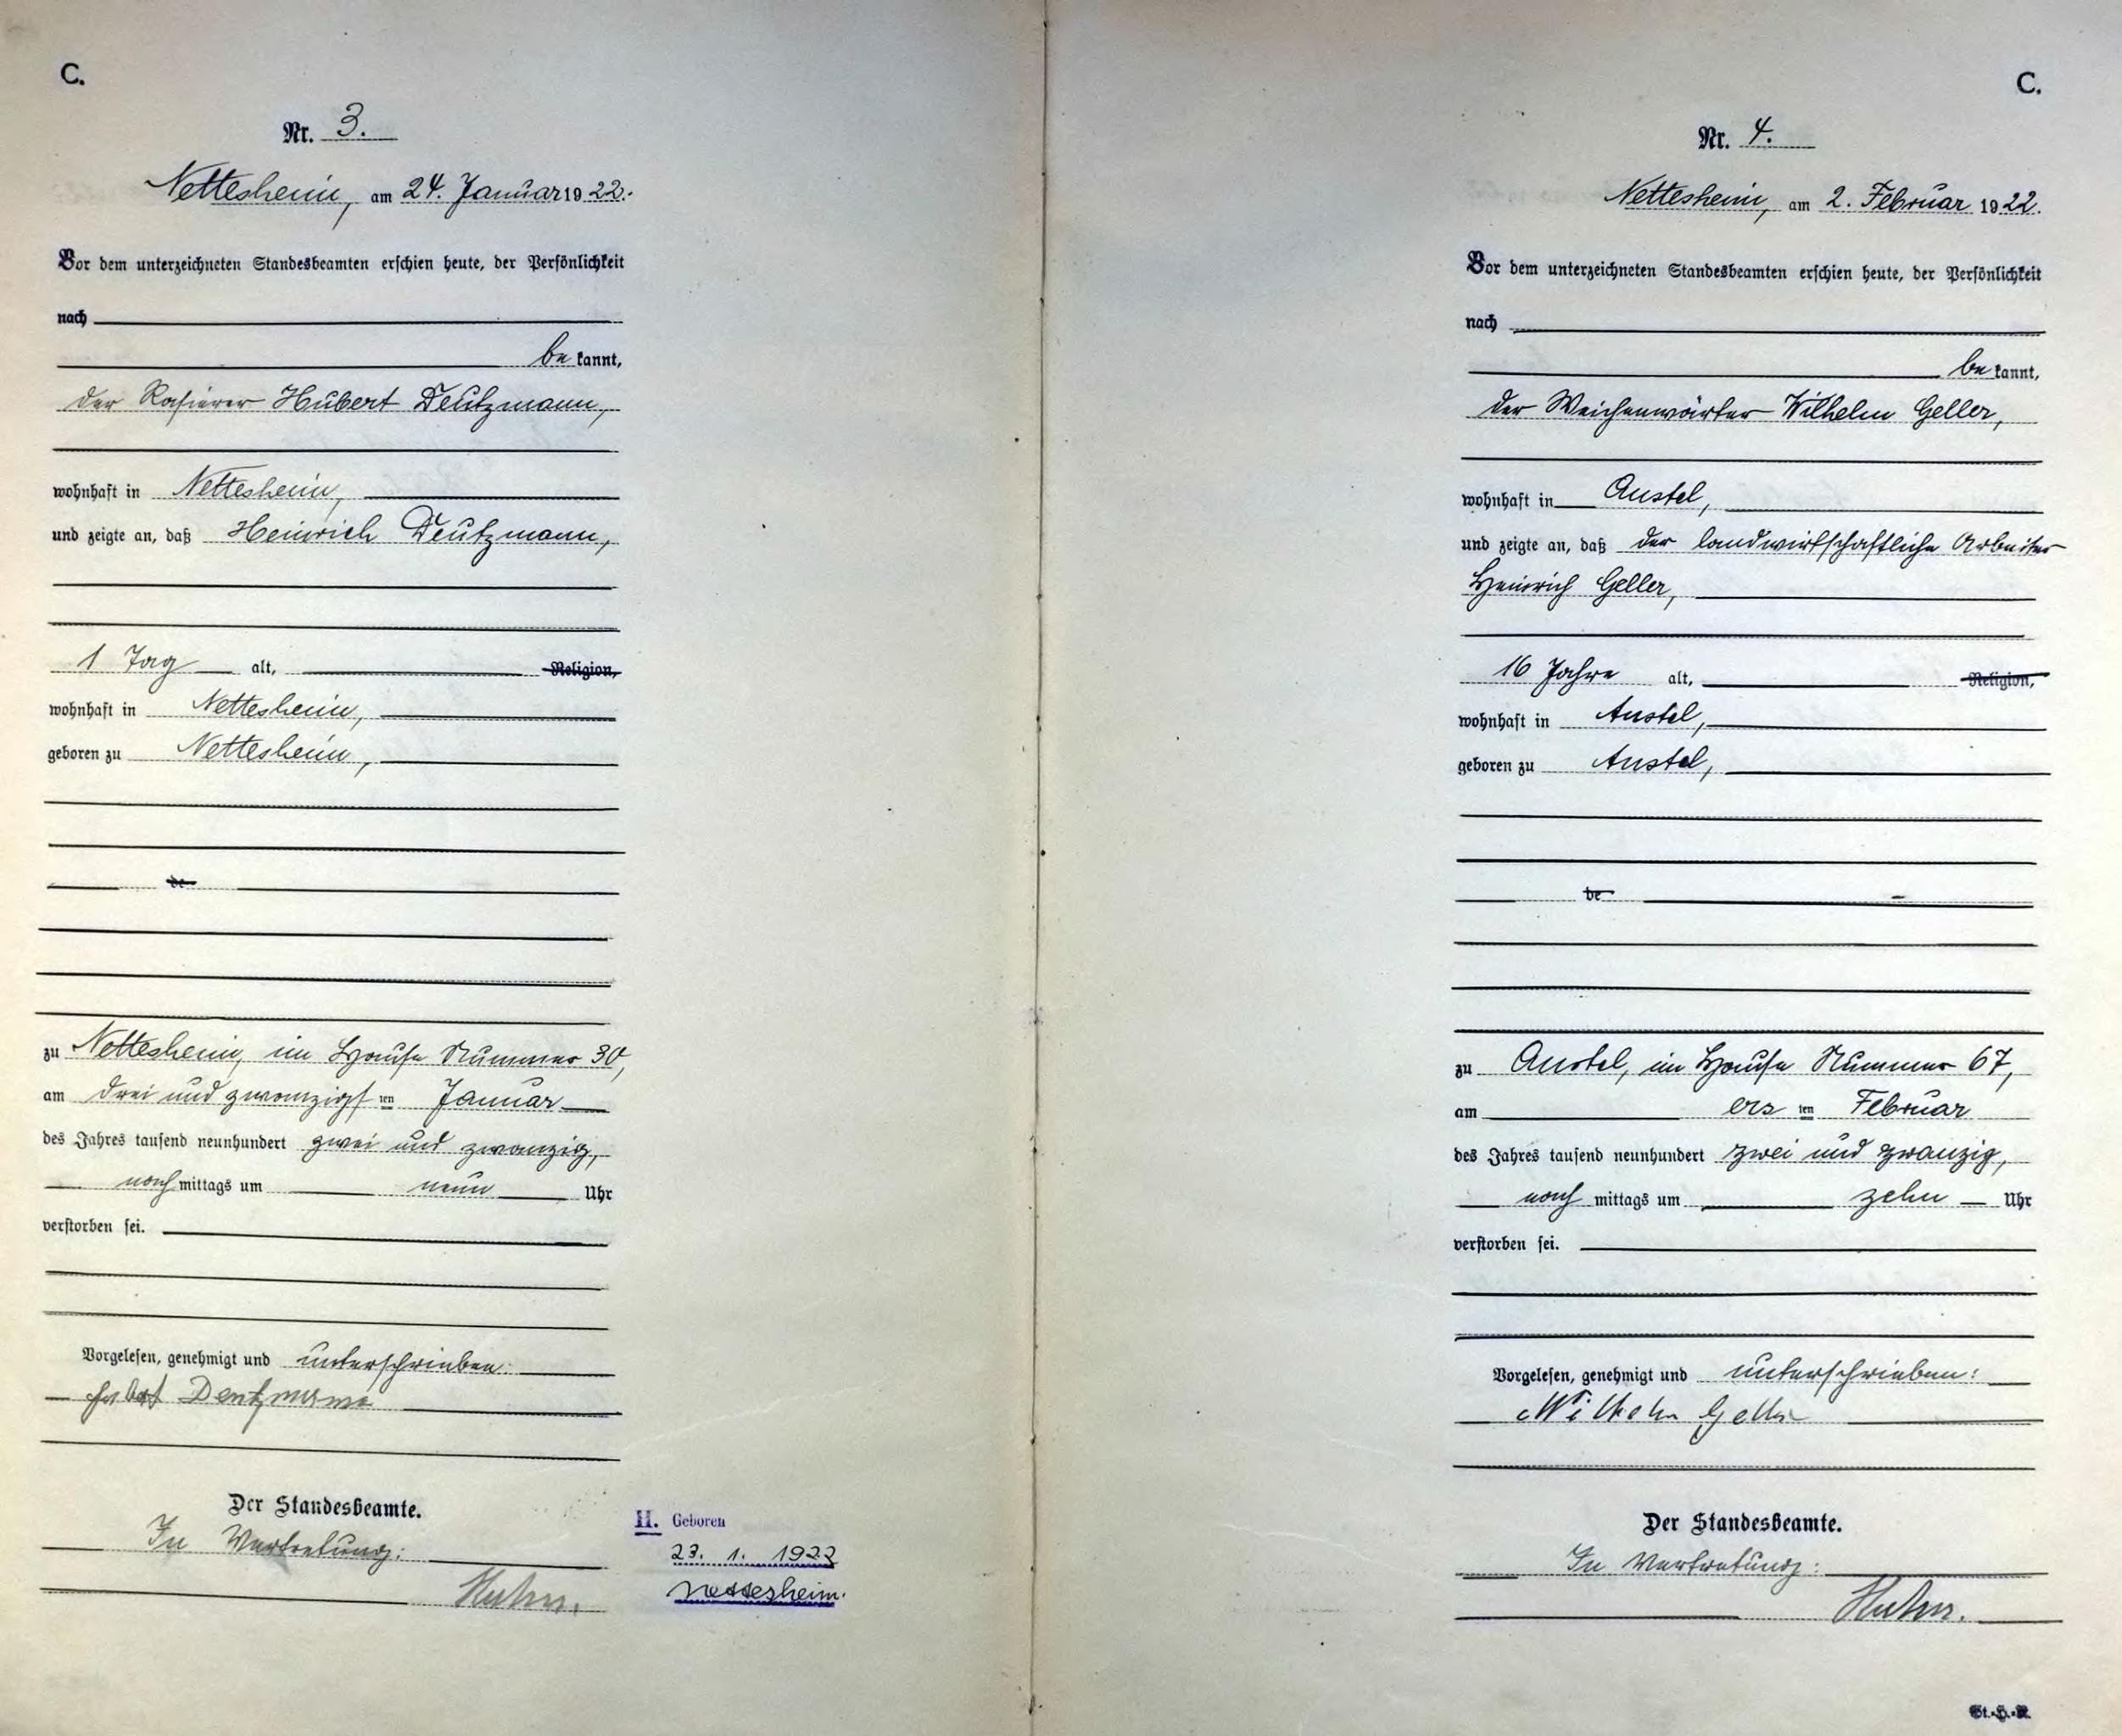 C.
Nr. 3.
Nettesheim, am 24. Januar 1922.
Vor dem unterzeichneten Standesbeamten erschien heute, der Persönlichkeit
nach
be kannt,
der Rasierer Hubert Deutzmann,
wohnhaft in Nettesheim,
und zeigte an, daß Heinrich Deutzmann,
1 Tag alt, Religion,
wohnhaft in Nettesheim,
geboren zu Nettesheim,
de
zu Nettesheim, im Hause Nummer 30,
am drei und zwanzigsten Januar
des Jahres tausend neunhundert zwei und zwanzig,
nach mittags um neun Uhr
verstorben sei.
Vorgelesen, genehmigt und unterschrieben.
Hubert Deutzmann
Der Standesbeamte.
In Vertretung:
II. Geboren
23. 1. 1922
Nettesheim.
C.
Nr. 4.
Nettesheim, am 2. Februar 1922.
Vor dem unterzeichneten Standesbeamten erschien heute, der Persönlichkeit
nach
be kannt,
der Weichenwärter Wilhelm Geller,
wohnhaft in Anstel,
und zeigte an, daß der landwirtschaftliche Arbeiter
Heinrich Geller,
16 Jahre alt, Religion,
wohnhaft in Anstel,
geboren zu Anstel,
de
zu Anstel, im Hause Nummer 67,
am ersten Februar
des Jahres tausend neunhundert zwei und zwanzig,
nach mittags um zehn Uhr
verstorben sei.
Vorgelesen, genehmigt und unterschrieben:
Wilhelm Geller
Der Standesbeamte.
In Vertretung: